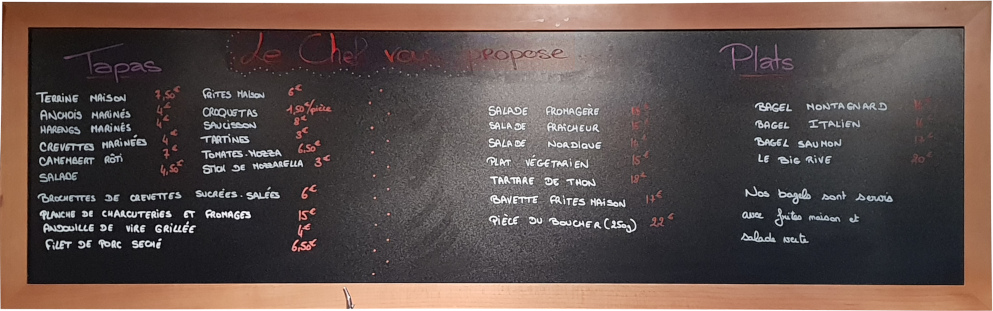 Le Chef vous propose
Tapas
TERRINE MAISON 7,50€
ANCHOIS MARINÉS 4€
HARENGS MARINÉS 4€
CREVETTES MARINÉES 4
CAMEMBERT RÔTI 7€
SALADE 4,50€
FRITES MAISON 6€
CROQUETAS 1,50€/pièce
SAUCISSON 8€
TARTINES 3€
TOMATES-MOZZA 6,50€
STICK DE MOZZARELLA 3€
BROCHETTES DE CREVETTES SUCRÉES-SALÉES 6€
PLANCHE DE CHARCUTERIES ET FROMAGES 15€
ANDOUILLE DE VIRE GRILLÉE 4€
FILET DE PORC SECHÉ 6,50€
Plats
SALADE FROMAGÈRE
SALADE FRAÎCHEUR
SALADE NORDIQUE
PLAT VÉGÉTARIEN 15€
TARTARE DE THON 18€
BAVETTE FRITES MAISON 17€
PIÈCE DU BOUCHER (250g) 22€
BAGEL MONTAGNARD
BAGEL ITALIEN
BAGEL SAUMON
LE BIG RIVE 20€
Nos bagels sont servis
avec frites maison et
salade verte